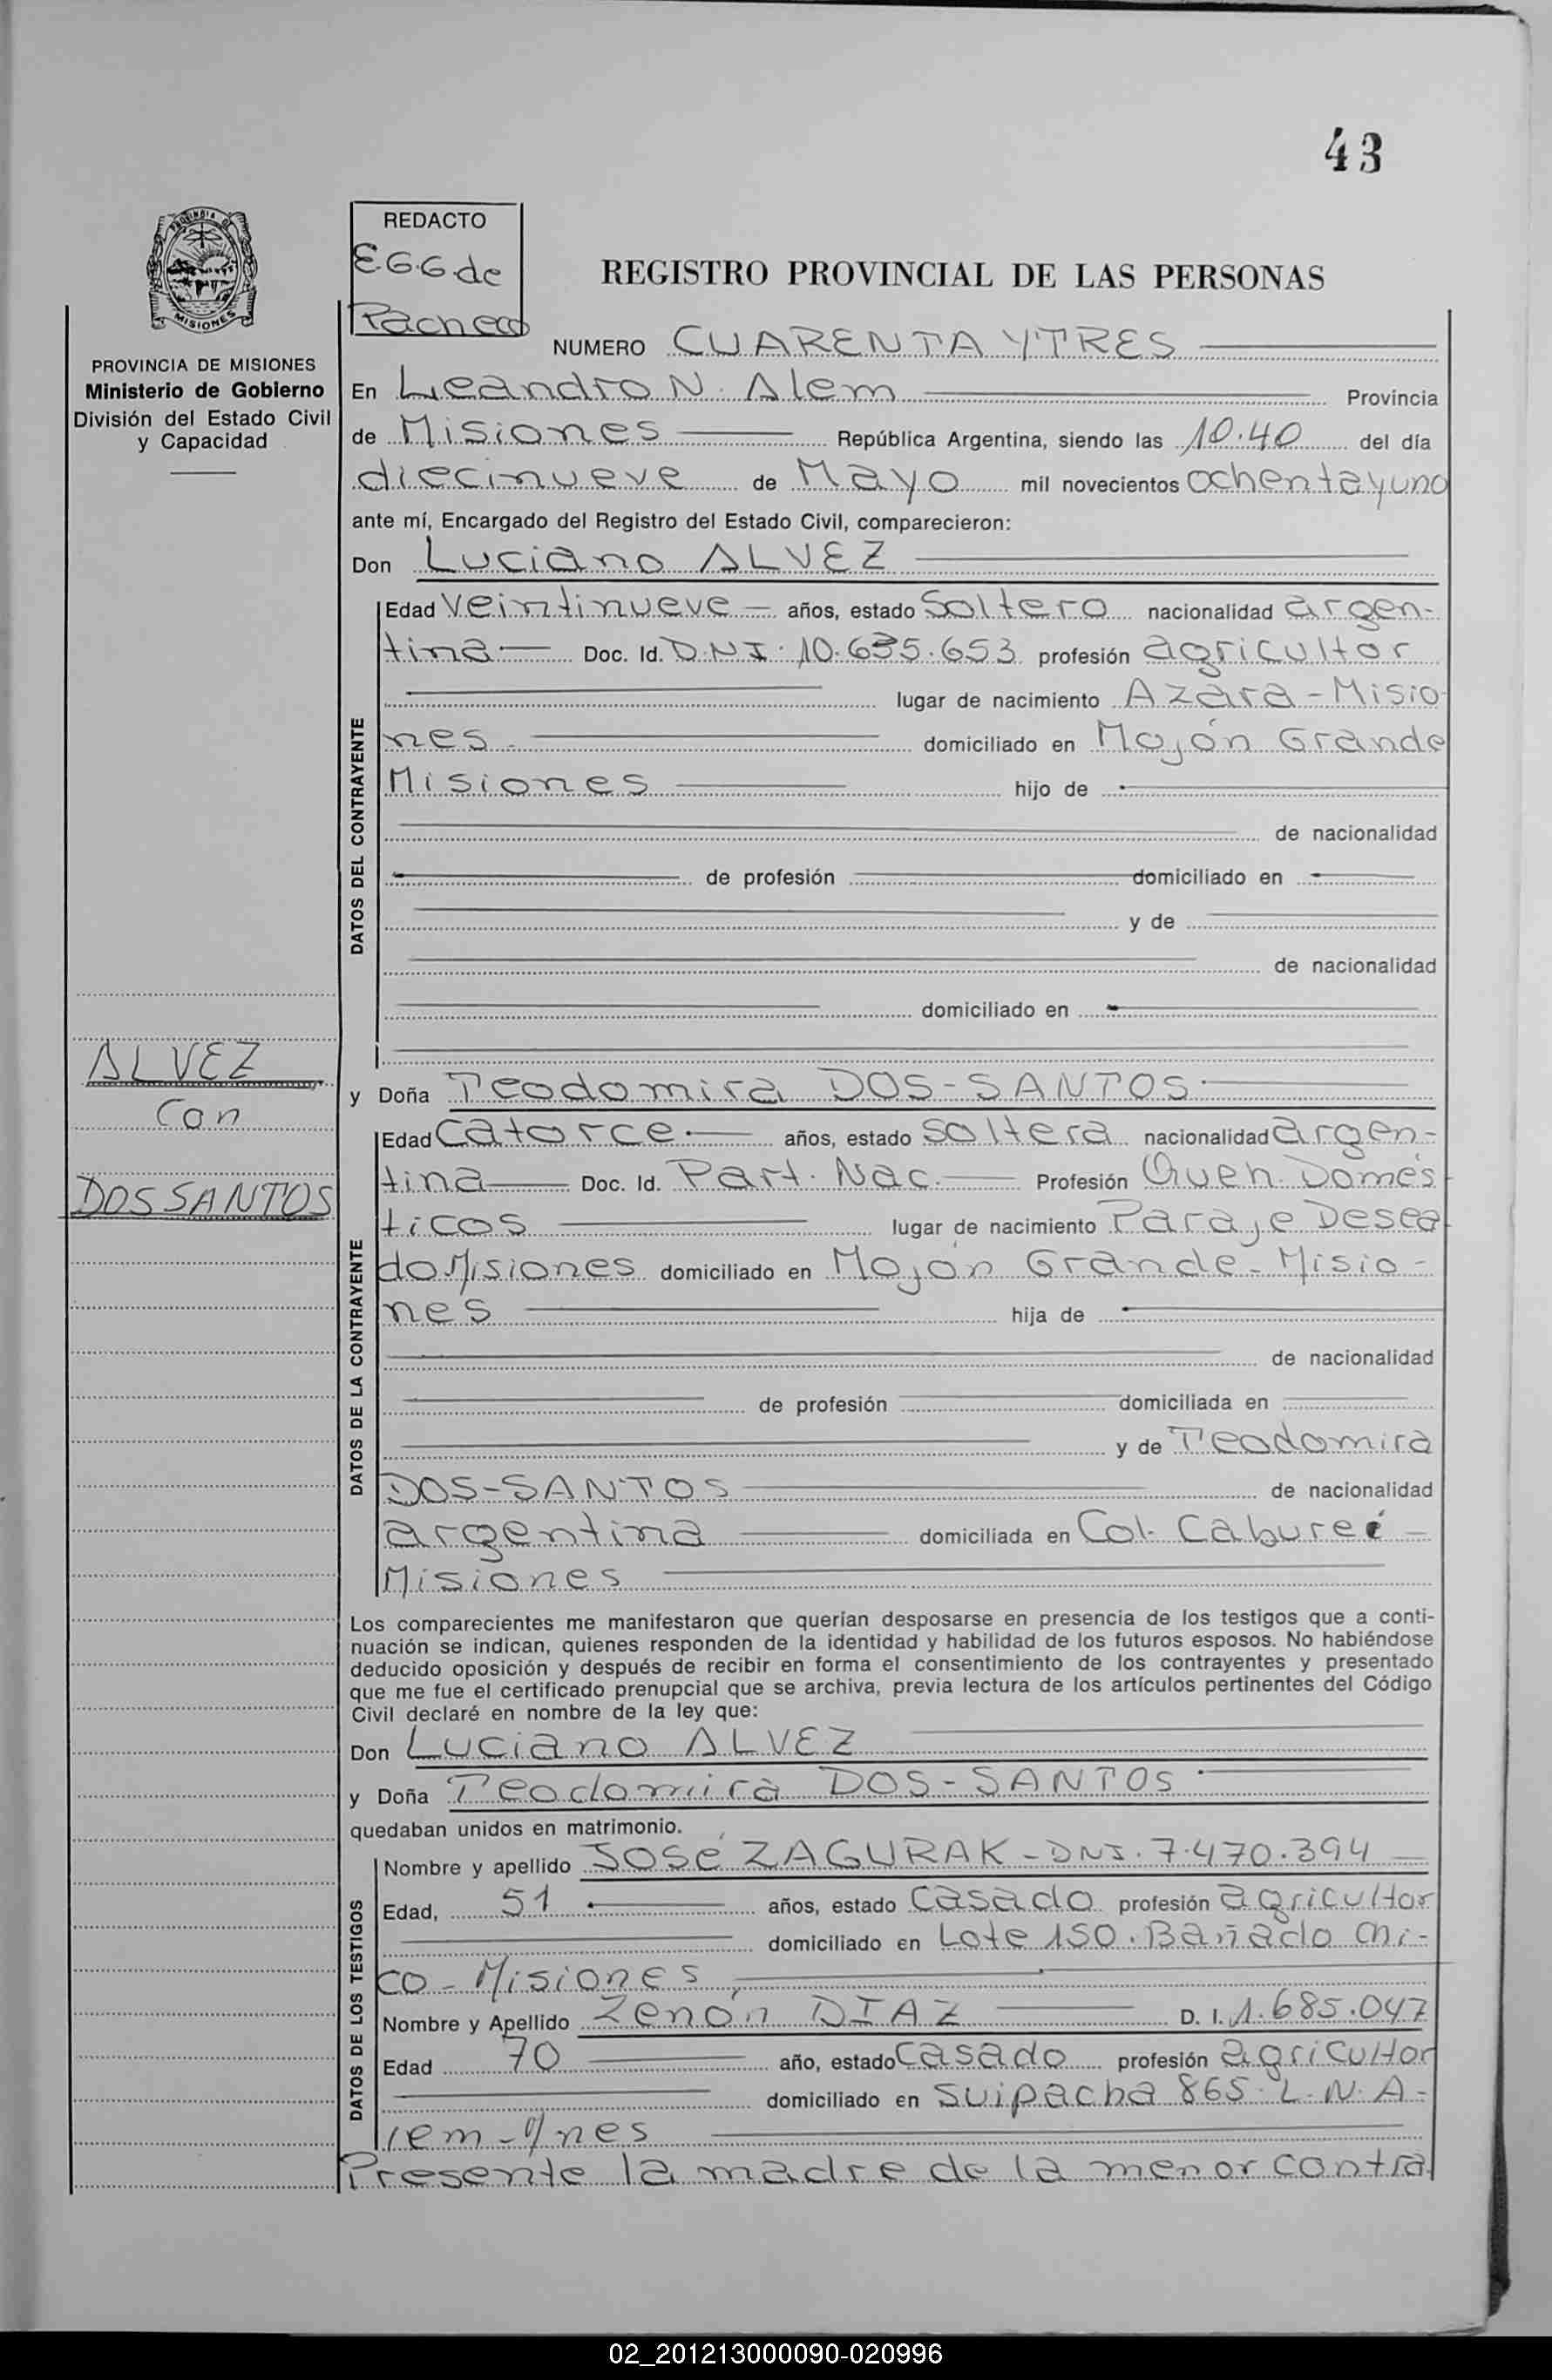 43
REDACTO
E.G.G. de
Pacheco
REGISTRO PROVINCIAL DE LAS PERSONAS
MISIONES
PROVINCIA DE MISIONES
Ministerio de Gobierno
División del Estado Civil
y Capacidad
NUMERO CUARENTA Y TRES
En Leandro N. Alem Provincia
de Misiones República Argentina, siendo las 10.40 del día
diecinueve de Mayo mil novecientos ochenta y uno
ante mí, Encargado del Registro del Estado Civil, comparecieron:
Don Luciano ALVEZ
DATOS DEL CONTRAYENTE
Edad veintinueve años, estado soltero nacionalidad argen-
tina Doc. Id. D.N.I. 10.635.653 profesión agricultor
lugar de nacimiento Azara - Misio
nes. domiciliado en Mojón Grande
Misiones hijo de
de nacionalidad
de profesión domiciliado en
y de
de nacionalidad
domiciliado en
ALVEZ
Con
DOS SANTOS
y Doña Teodomira DOS-SANTOS
DATOS DE LA CONTRAYENTE
Edad Catorce años, estado soltera nacionalidad argen-
tina Doc. Id. Part. Nac. Profesión Queh. Domés
ticos lugar de nacimiento Paraje Desea
do Misiones domiciliado en Mojón Grande - Misio-
nes hija de
de nacionalidad
de profesión domiciliada en
y de Teodomira
DOS-SANTOS de nacionalidad
argentina domiciliada en Col. Cabureí -
Misiones
Los comparecientes me manifestaron que querían desposarse en presencia de los testigos que a conti-
nuación se indican, quienes responden de la identidad y habilidad de los futuros esposos. No habiéndose
deducido oposición y después de recibir en forma el consentimiento de los contrayentes y presentado
que me fue el certificado prenupcial que se archiva, previa lectura de los artículos pertinentes del Código
Civil declaré en nombre de la ley que:
Don Luciano ALVEZ
y Doña Teodomira DOS-SANTOS
quedaban unidos en matrimonio.
DATOS DE LOS TESTIGOS
Nombre y apellido José ZAGURAK - DNI. 7.470.394
Edad, 51 años, estado Casado profesión agricultor
domiciliado en Lote 150. Bañado Chi-
co - Misiones
Nombre y Apellido Zenón DIAZ D. I. 1.685.047
Edad 70 año, estado Casado profesión agricultor
domiciliado en Suipacha 865. L. N. A-
lem - M/nes
Presente la madre de la menor contra
02_201213000090-020996